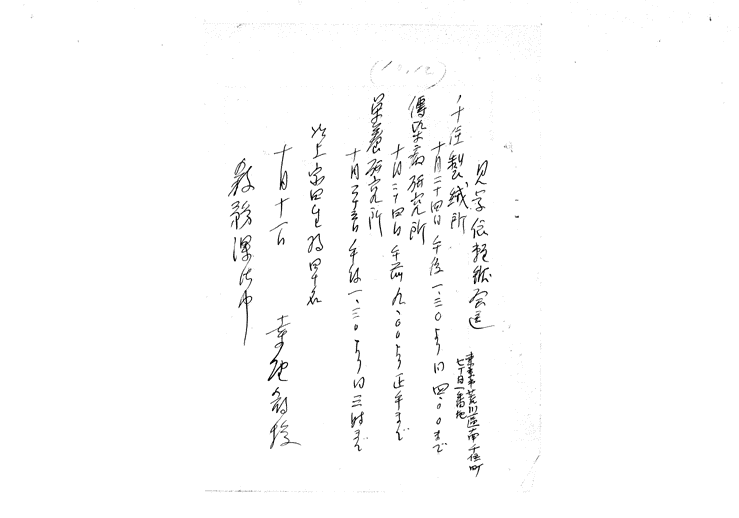 (10.12)
見学依頼状発送
千住製絨所
東京市荒川區南千住町
七丁目一番地
十月二十四日 午後一.三〇より同四.〇〇まで
傳染病研究所
十月二十四日 午前九.〇〇より正午まで
栄養研究所
十月二十五日 午後一.三〇より同三時まで
以上 四十名
十月十一日
教授
教務課御中